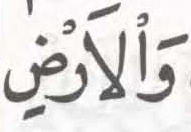 وَٱلْاَرْضِ